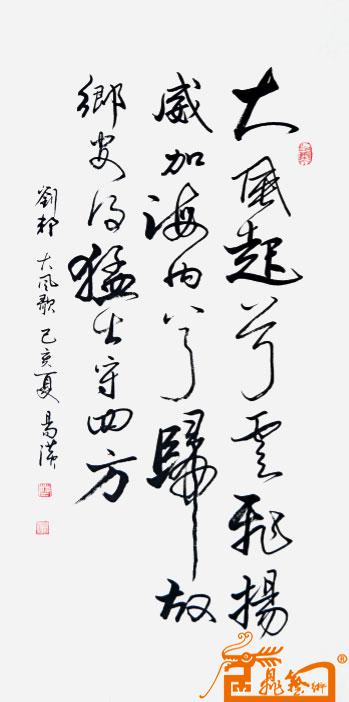 大風起兮雲飛揚
威加海内兮歸故
鄉安得猛士守四方
劉邦 大风歌 己亥夏
®